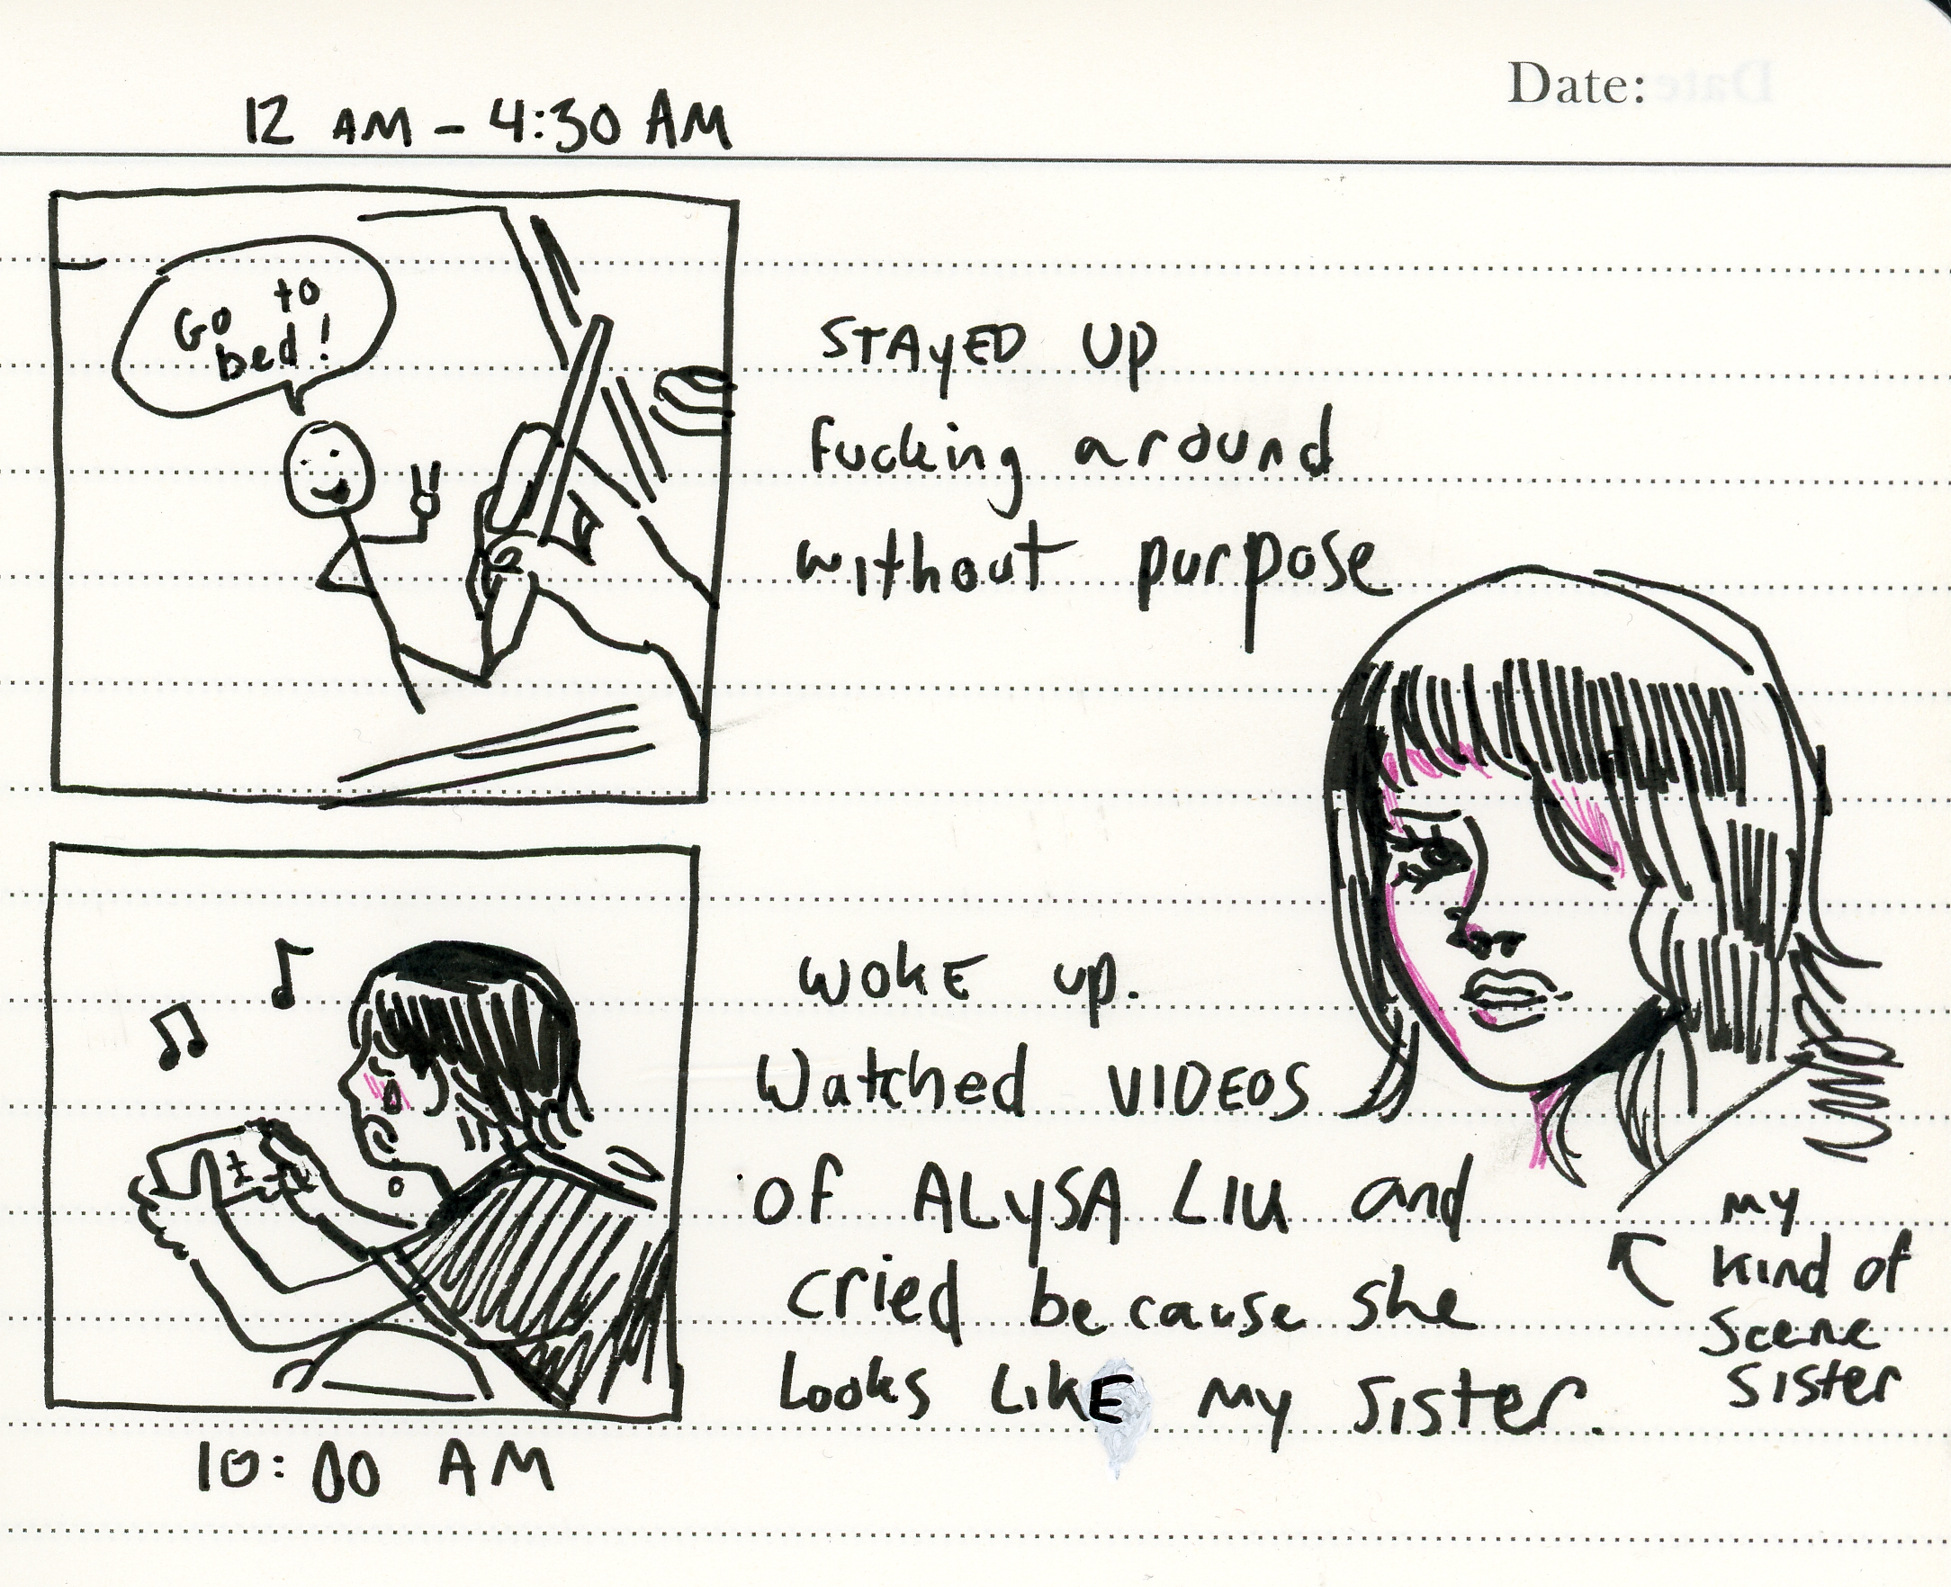 Date:
12 AM - 4:30 AM
Go to
bed!
STAYED UP
fucking around
without purpose
WOKE up.
Watched VIDEOS
of ALYSA LIU and
cried because she
Looks LikE my sister.
my
kind of
scene
sister
10:00 AM